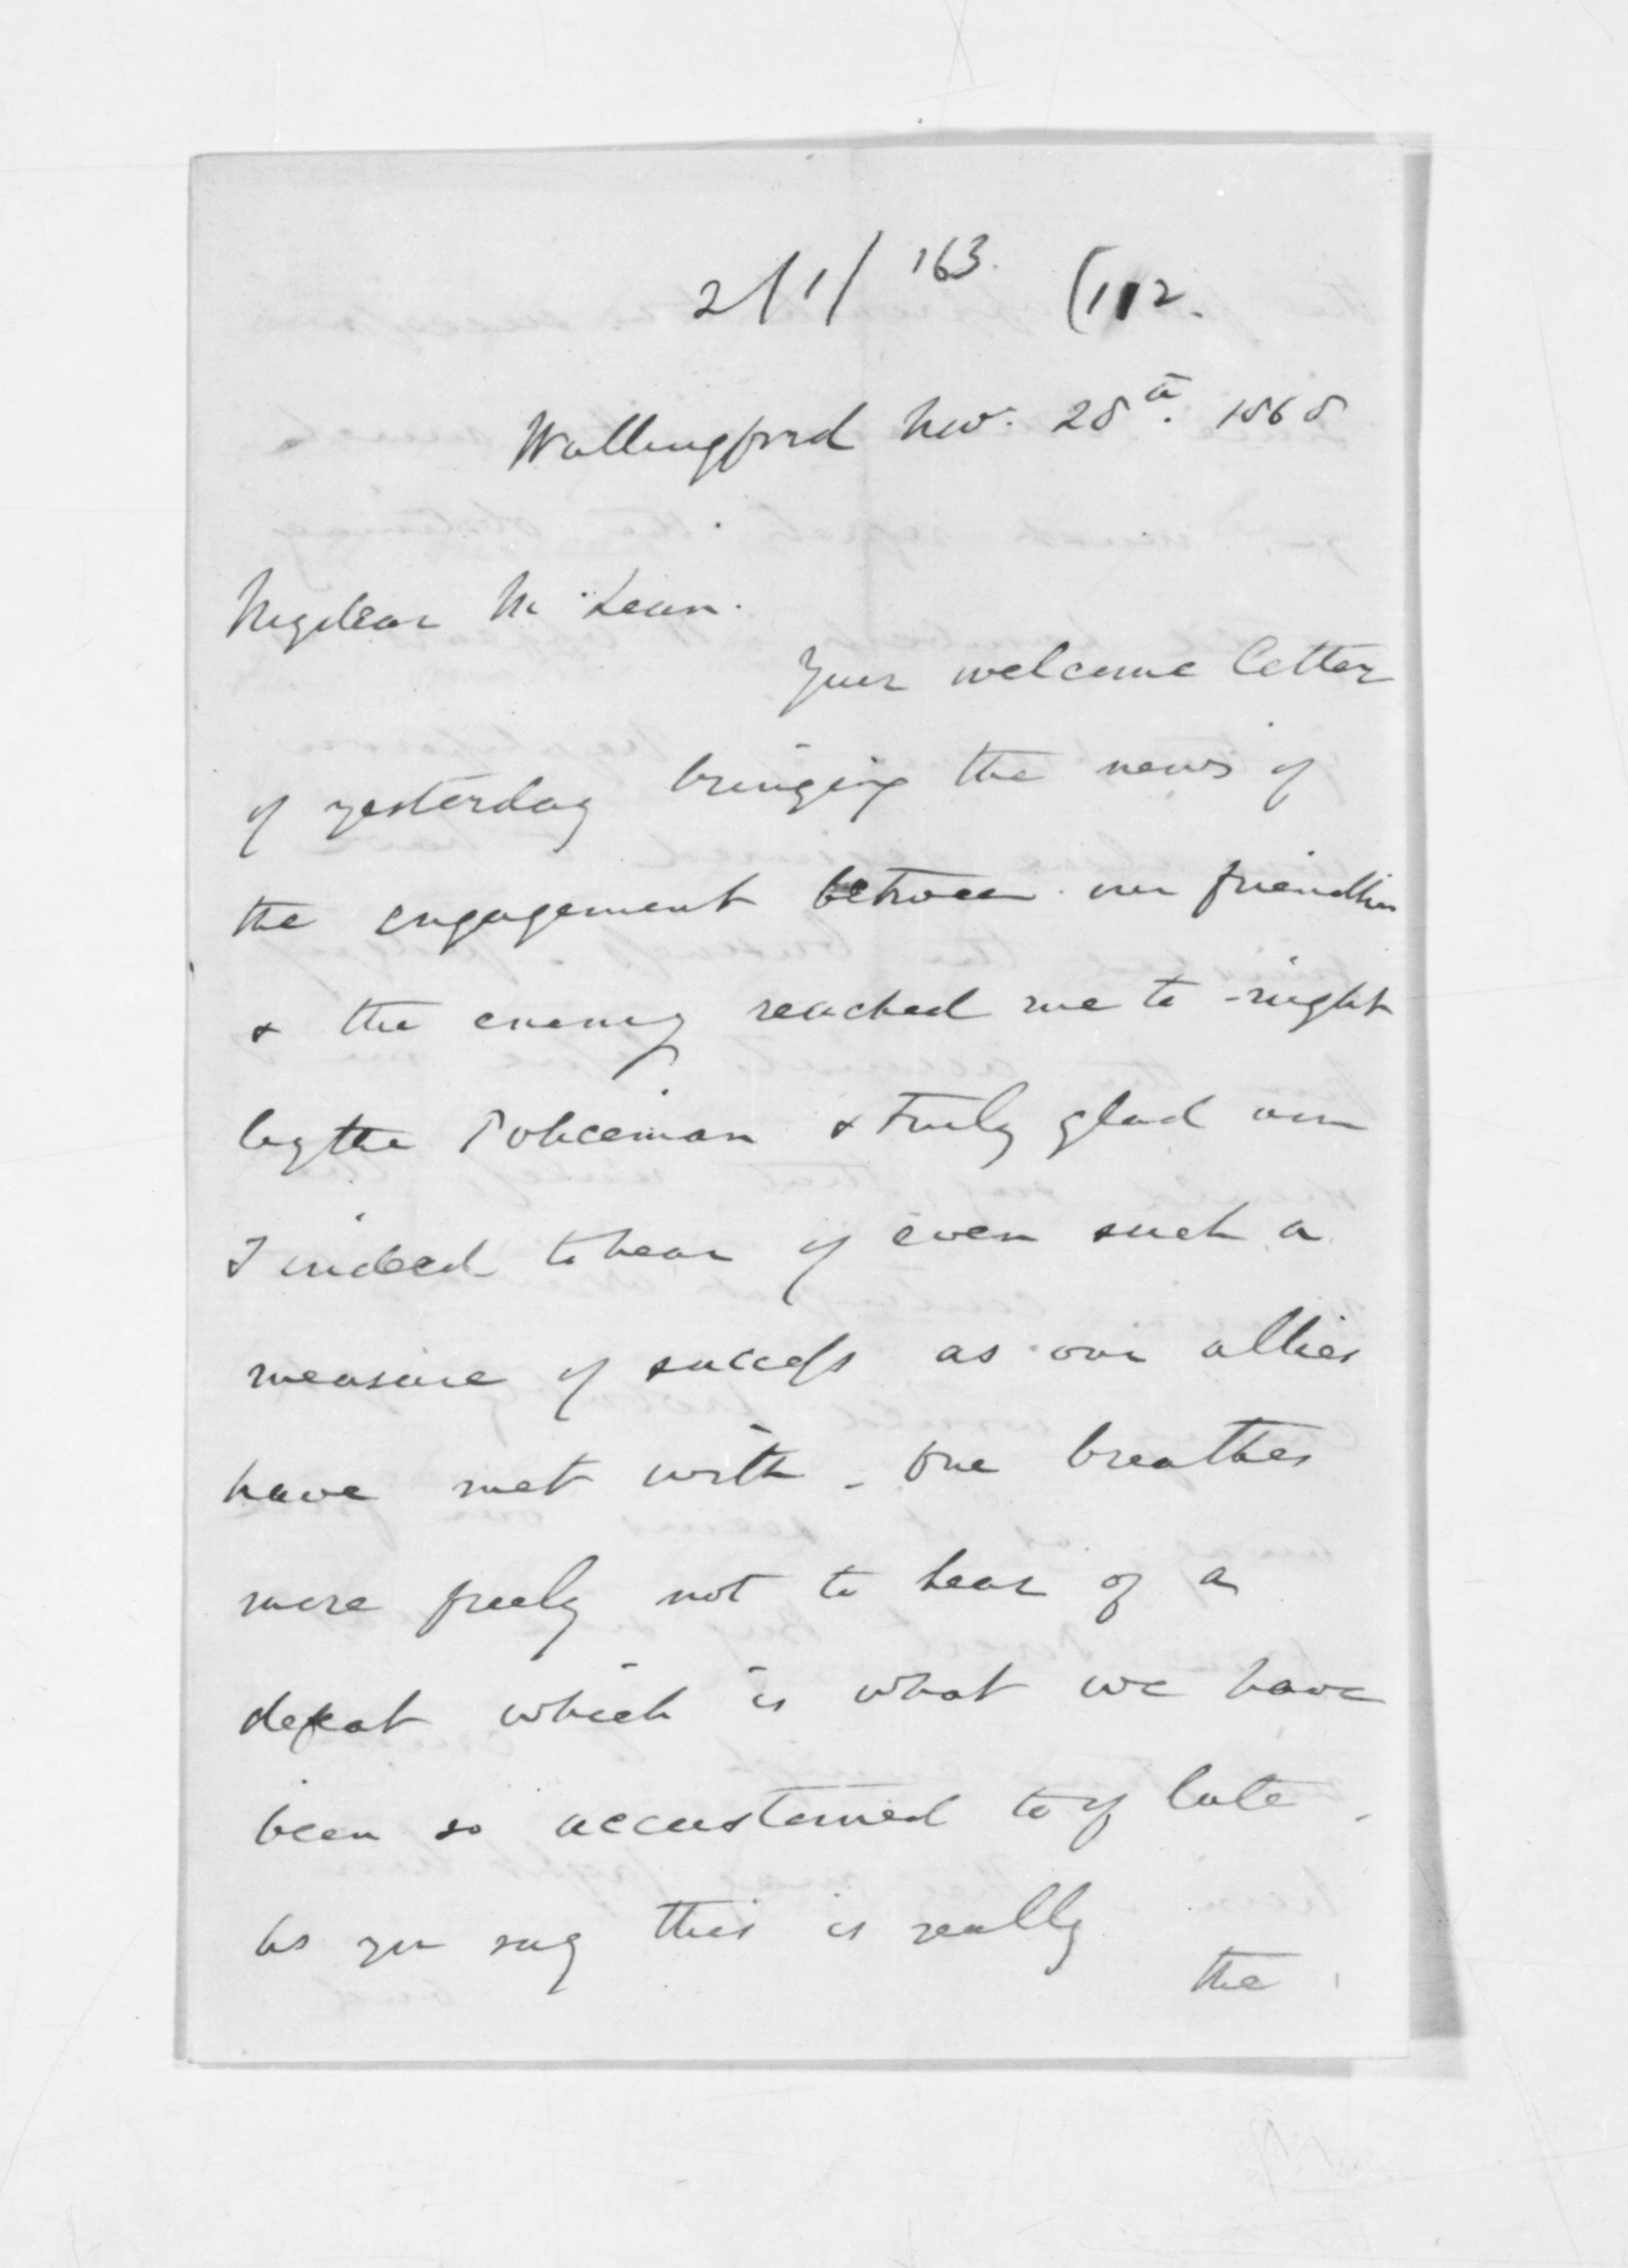 2/1/ 163. (112.
Wallingford Nov. 28th. 1868
My dear McLean.
Your welcome letter
of yesterday bringing the news of
the engagement between our friendlies
& the enemy reached me to-night
by the Policeman & truly glad am
I indeed to hear of even such a
measure of success as our allies
have met with - One breathes
more freely not to hear of a
defeat which is what we have
been so accustomed to of late.
As you say this is really
the